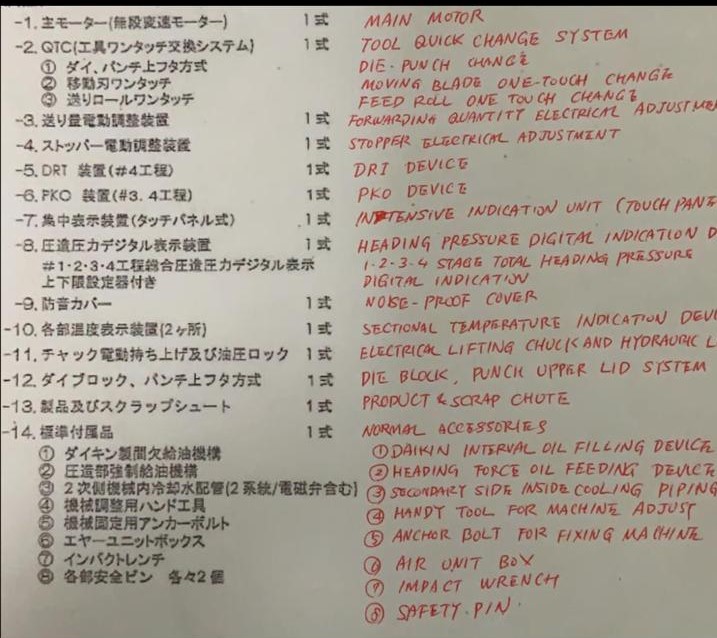 -1. 主モーター(無段変速モーター) 1式 MAIN MOTOR
-2. QTC(工具ワンタッチ交換システム) 1式 TOOL QUICK CHANGE SYSTEM
① ダイ、パンチ上フタ方式 DIE-PUNCH CHANGE
② 移動刃ワンタッチ MOVING BLADE ONE-TOUCH CHANGE
③ 送りロールワンタッチ FEED ROLL ONE TOUCH CHANGE
-3. 送り量電動調整装置 1式 FORWARDING QUANTITY ELECTRICAL ADJUSTME
-4. ストッパー電動調整装置 1式 STOPPER ELECTRICAL ADJUSTMENT
-5. DRT 装置(#4工程) 1式 DRI DEVICE
-6. PKO 装置(#3. 4工程) 1式 PKO DEVICE
-7. 集中表示装置(タッチパネル式) 1式 INTENSIVE INDICATION UNIT (TOUCH PANE
-8. 圧造圧力デジタル表示装置 1式 HEADING PRESSURE DIGITAL INDICATION D
#1・2・3・4工程総合圧造圧力デジタル表示 1-2-3-4 STAGE TOTAL HEADING PRESSURE
上下限設定器付き DIGITAL INDICATION
-9. 防音カバー 1式 NOISE-PROOF COVER
-10. 各部温度表示装置(2ヶ所) 1式 SECTIONAL TEMPERATURE INDICATION DEVI
-11. チャック電動持ち上げ及び油圧ロック 1式 ELECTRICAL LIFTING CHUCK AND HYDRAURIC L
-12. ダイブロック、パンチ上フタ方式 1式 DIE BLOCK, PUNCH UPPER LID SYSTEM
-13. 製品及びスクラップシュート 1式 PRODUCT & SCRAP CHOTE
-14. 標準付属品 1式 NORMAL ACCESSORIES
① ダイキン製間欠給油機構 ① DAIKIN INTERVAL OIL FILLING DEVICE
② 圧造部強制給油機構 ② HEADING FORCE OIL FEEDING DEVICE
③ 2次側機械内冷却水配管(2系統/電磁弁含む) ③ SECONDARY SIDE INSIDE COOLING PIPING
④ 機械調整用ハンド工具 ④ HANDY TOOL FOR MACHINE ADJUST
⑤ 機械固定用アンカーボルト ⑤ ANCHOR BOLT FOR FIXING MACHINE
⑥ エヤーユニットボックス ⑥ AIR UNIT BOX
⑦ インパクトレンチ ⑦ IMPACT WRENCH
⑧ 各部安全ピン 各々2個 ⑧ SAFETY PIN